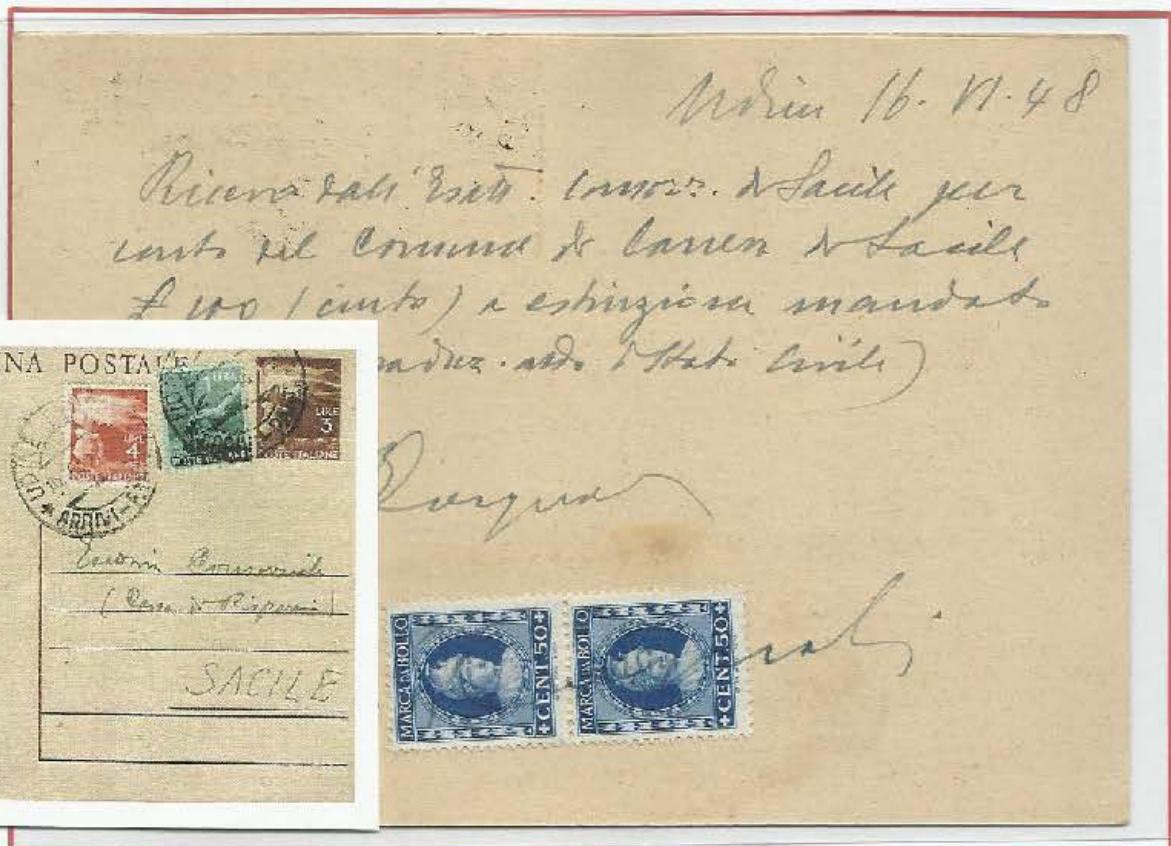 Udine 16. VI. 48
Ricevo dall'Esatt. Consorz. di Sacile per
conto del Comune di Caneva di Sacile
£ 100 (cento) a estinzione mandato
atto d'Stato Civile)
NA POSTALE
LIRE
4
POSTE ITALIANE
LIRE
3
POSTE ITALIANE
ARRIVI
Esattoria Consorziale
(Cassa di Risparmio)
SACILE
MARCA DA BOLLO
CENT. 50
MARCA DA BOLLO
CENT. 50